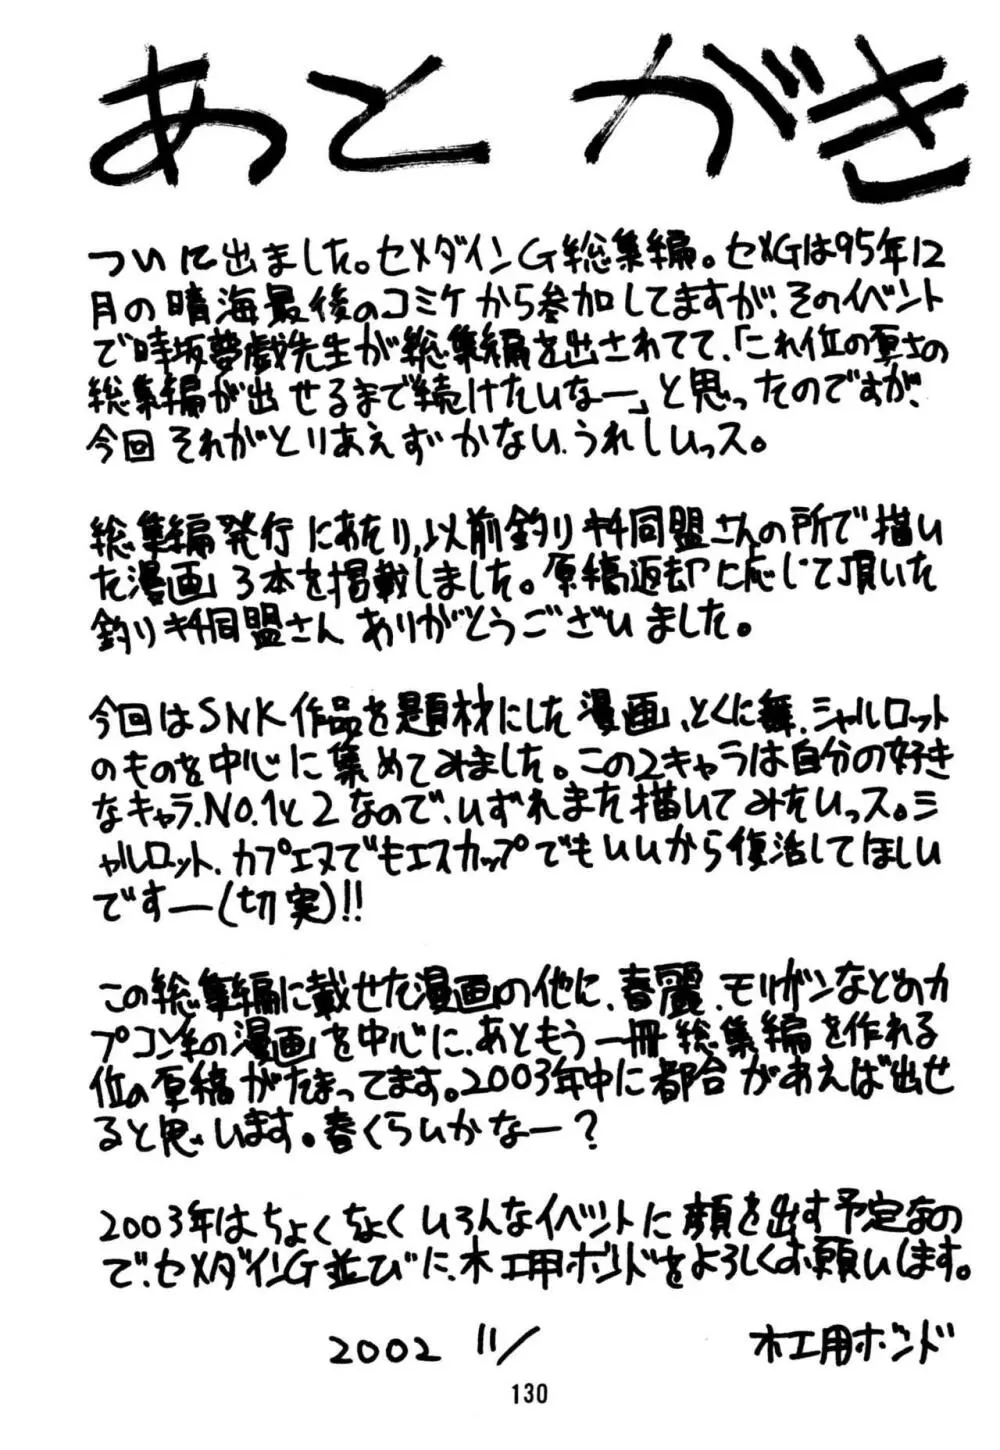 あとがき
ついに出ました。セメダインG総集編。セメGは95年12
月の晴海最後のコミケから参加してますが、そのイベント
で時坂夢戯先生が総集編を出されてて、「これ位の厚さの
総集編が出せるまで続けたいなー」と思ったのですが、
今回それがとりあえずかない、うれしいっス。
総集編発行にあたり、以前釣りキチ同盟さんの所で描い
た漫画3本を掲載しました。原稿返却に応じて頂いた
釣りキチ同盟さんありがとうございました。
今回はSNK作品を題材にした漫画、とくに舞、シャルロット
のものを中心に集めてみました。この2キャラは自分の好き
なキャラ.NO.1と2なので、いずれまた描いてみたいっス。シ
ャルロット、カプエヌでもエスカップでもいいから復活してほしい
ですー(切実)!!
この総集編に載せた漫画の他に、春麗、モリガンなどのカ
プコン系の漫画を中心に、あともう一冊総集編を作れる
位の原稿がたまってます。2003年中に都合があえば出せ
ると思います。春くらいかなー?
2003年はちょくちょくいろんなイベントに顔を出す予定なの
で、セメダインG並びに、木工用ボンドをよろしくお願いします。
2002 11/ 木工用ボンド
130